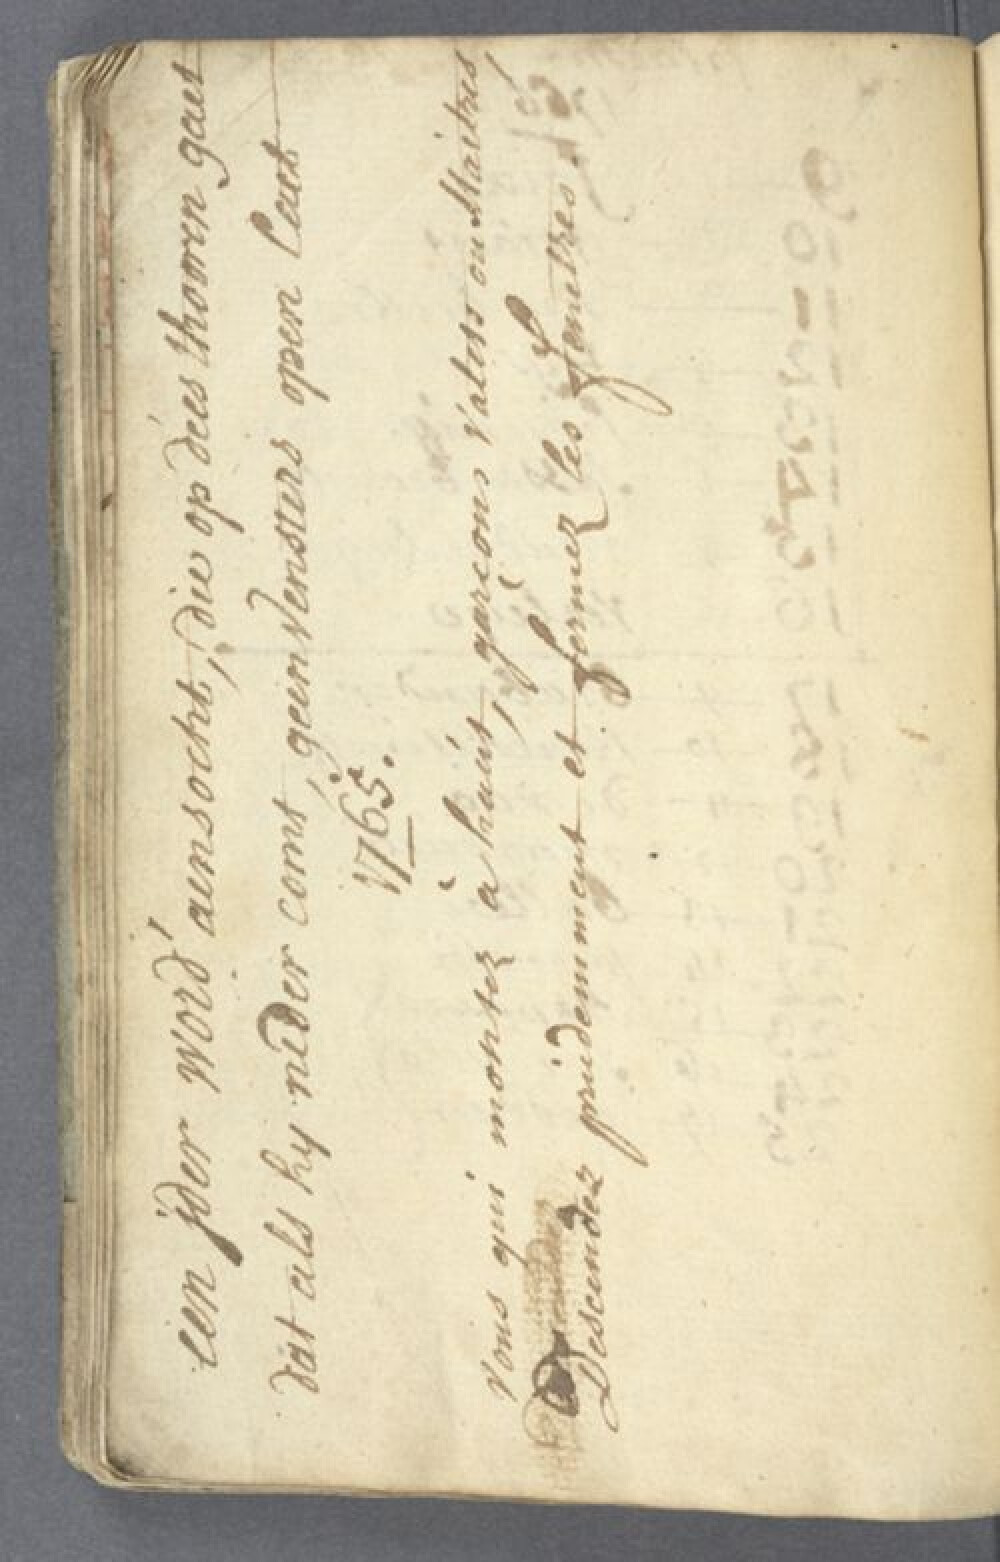 een jder word' aensocht, die op dées thooren gaet
dat als hy néder comt, geen vensters open laet
1765.
Vous qui montez à hauit, garçons valets ou Maitres
Descendez prudemment et fermez les fenetres.